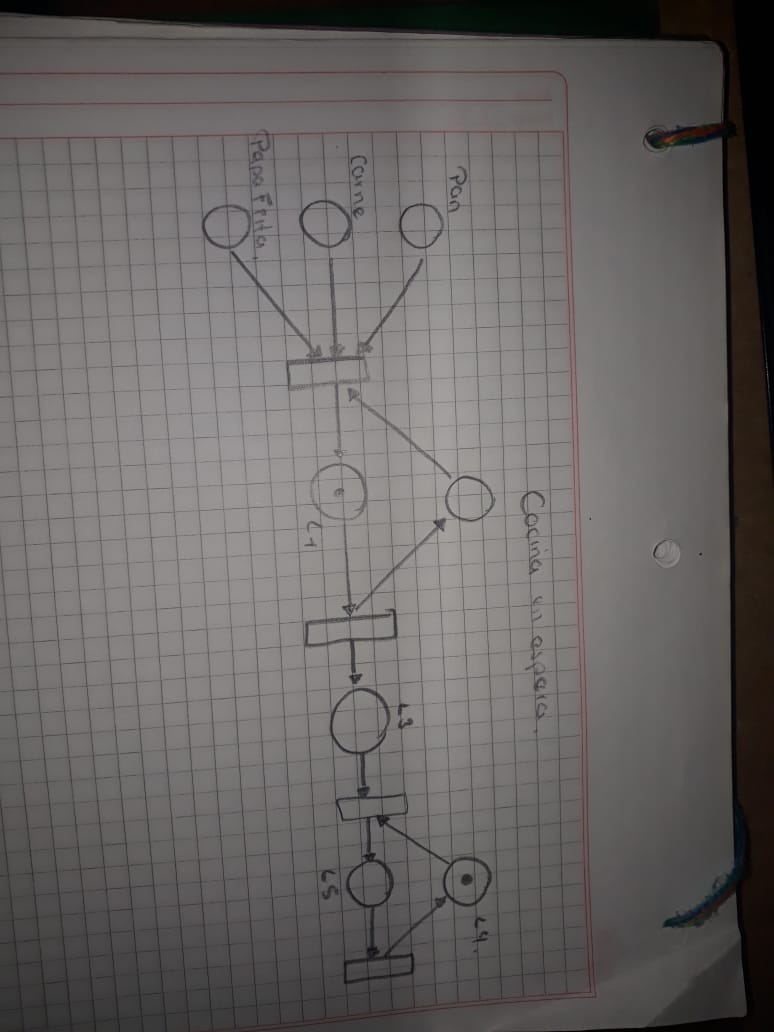 Cocina en espera.
Pan
Carne
Papa Frita
L1
L3
L4.
L5